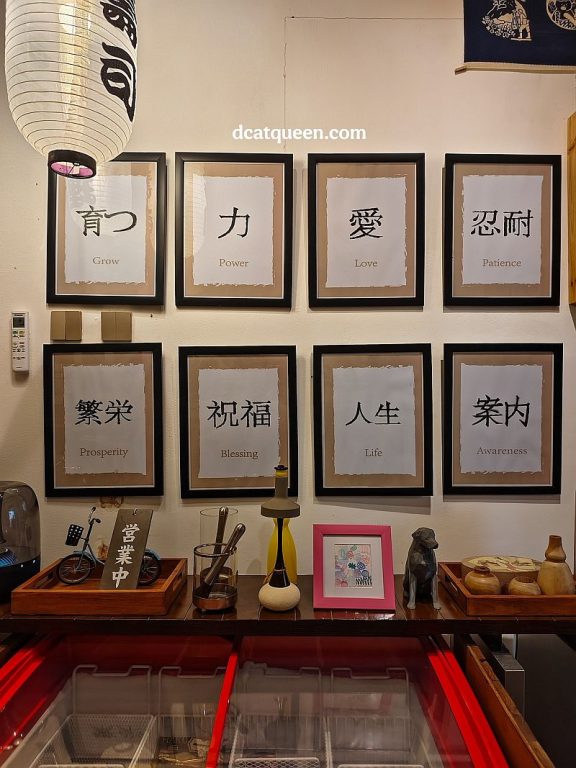 寿司
dcatqueen.com
育つ
Grow
力
Power
愛
Love
忍耐
Patience
繁栄
Prosperity
祝福
Blessing
人生
Life
案内
Awareness
営業中